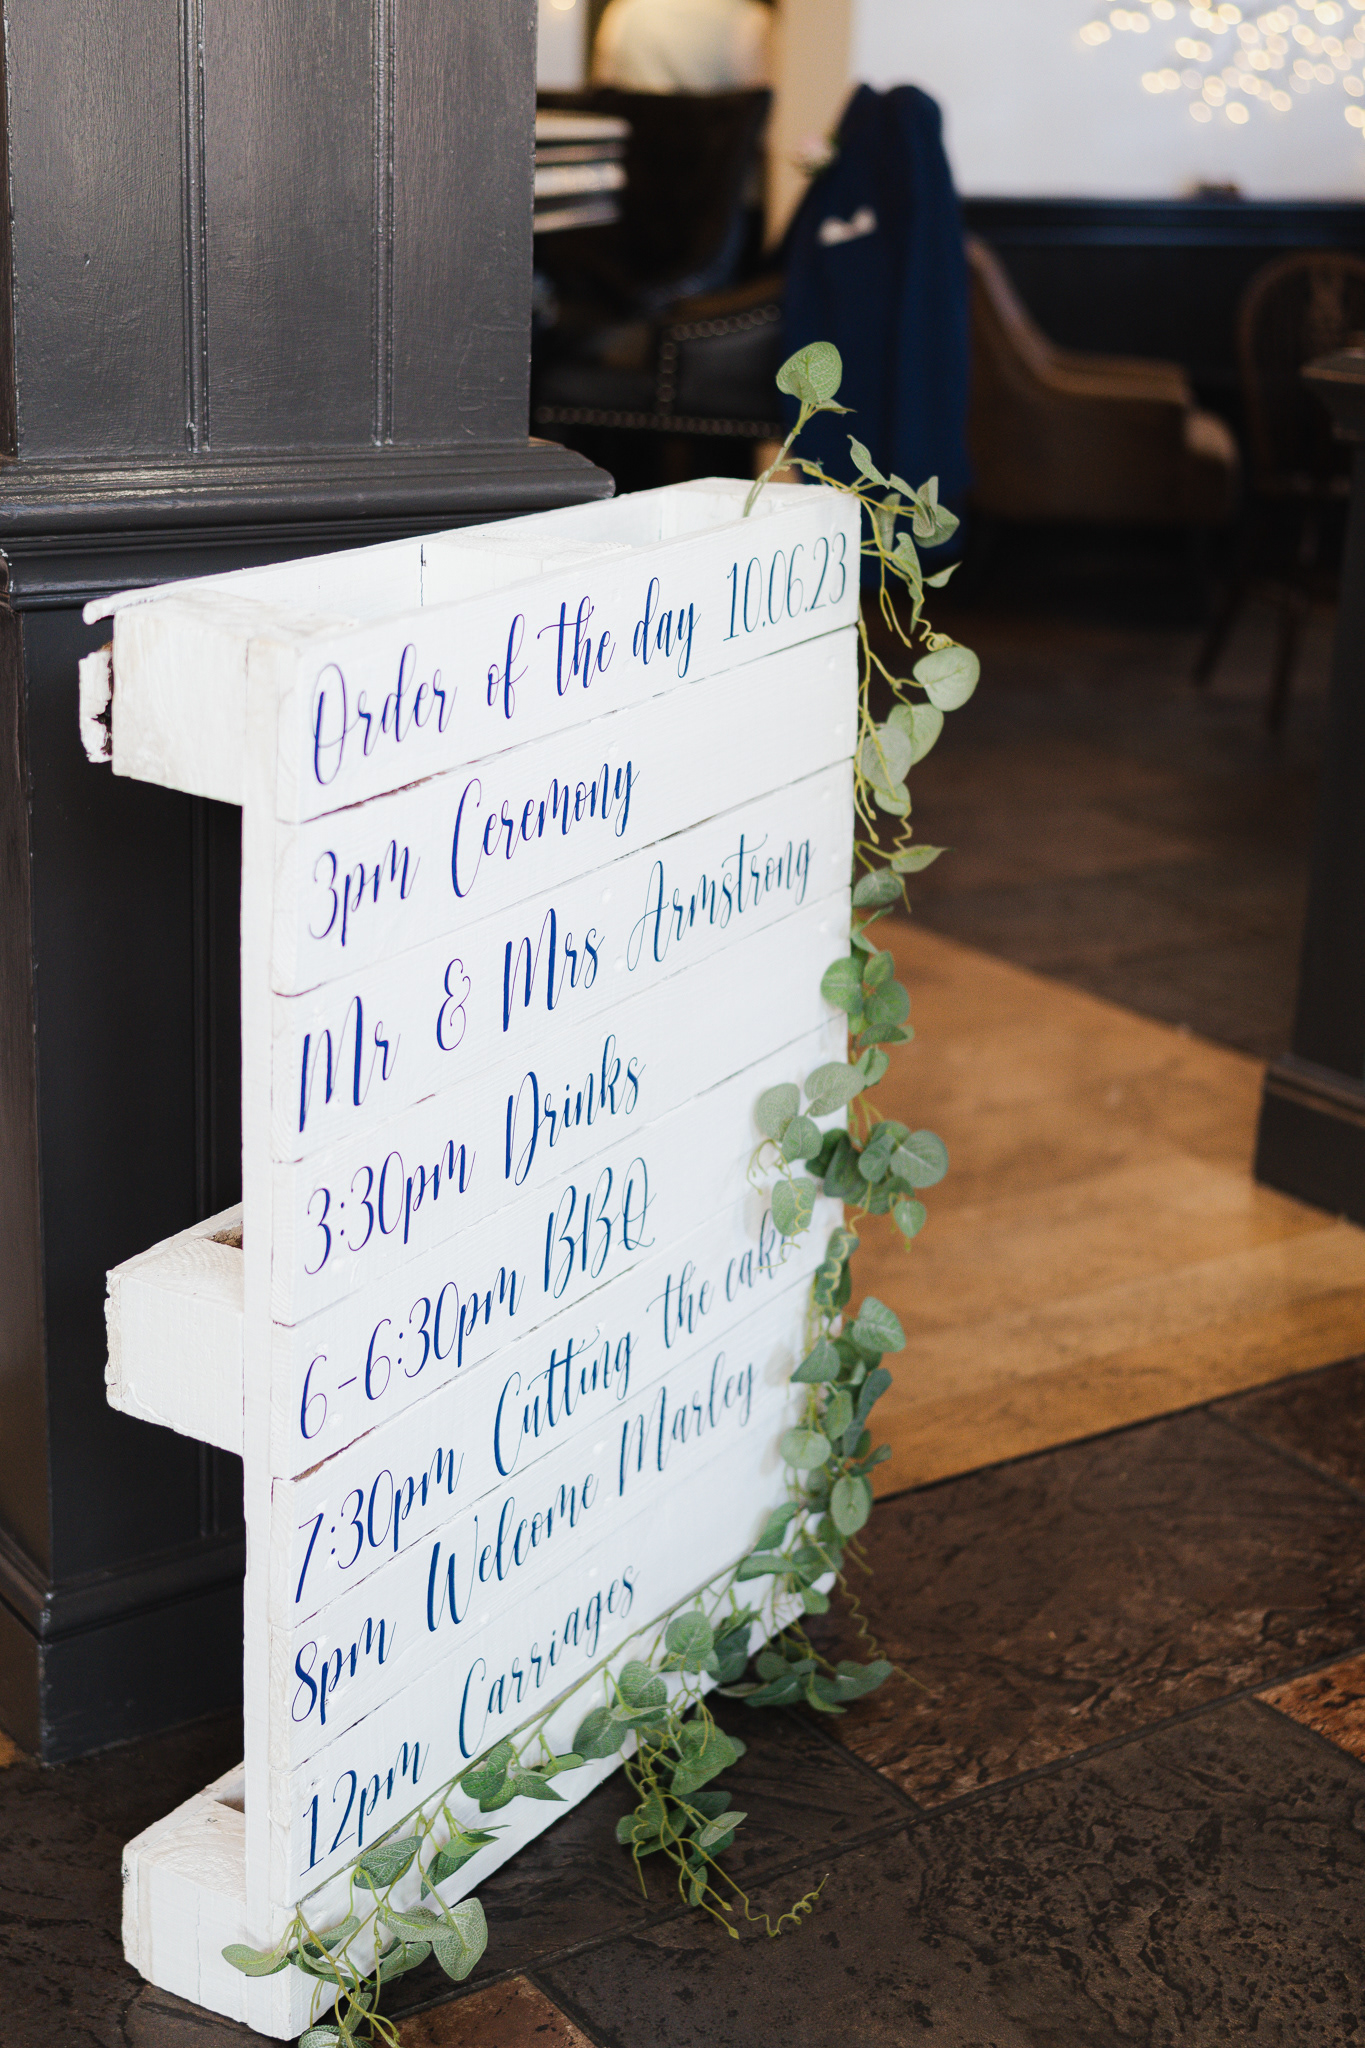 Order of the day 10.06.23
3pm Ceremony
Mr & Mrs Armstrong
3:30pm Drinks
6-6:30pm BBQ
7:30pm Cutting the cake
8pm Welcome Marley
12pm Carriages